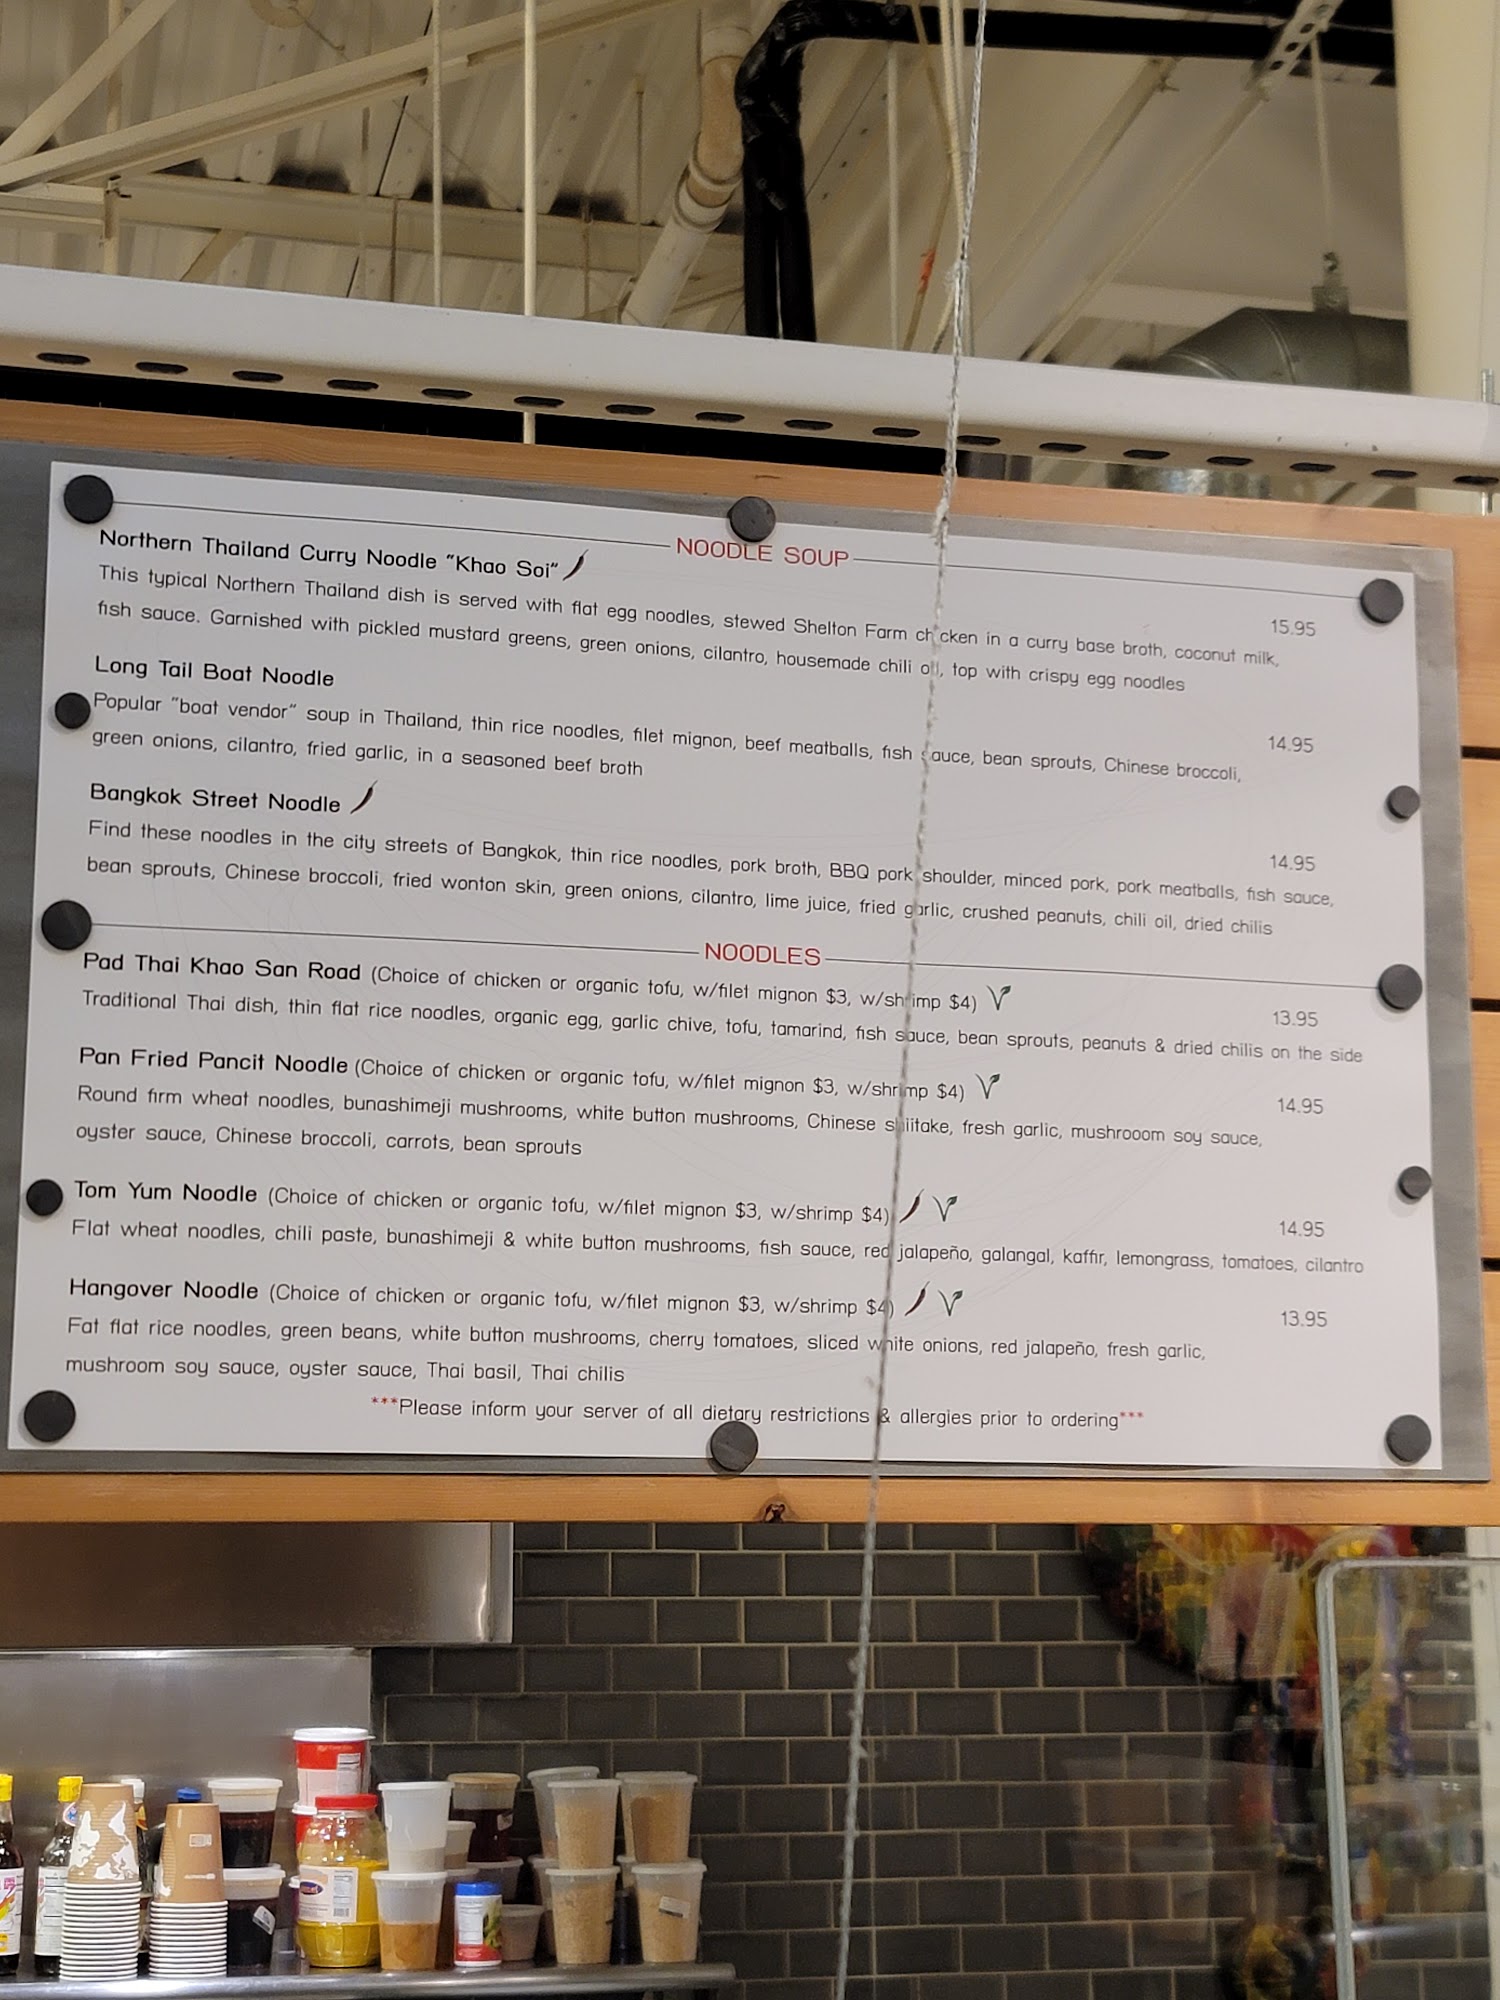 NOODLE SOUP
Northern Thailand Curry Noodle "Khao Soi"
15.95
This typical Northern Thailand dish is served with flat egg noodles, stewed Shelton Farm chicken in a curry base broth, coconut milk,
fish sauce. Garnished with pickled mustard greens, green onions, cilantro, housemade chili oil, top with crispy egg noodles
Long Tail Boat Noodle
14.95
Popular "boat vendor" soup in Thailand, thin rice noodles, filet mignon, beef meatballs, fish sauce, bean sprouts, Chinese broccoli,
green onions, cilantro, fried garlic, in a seasoned beef broth
Bangkok Street Noodle
14.95
Find these noodles in the city streets of Bangkok, thin rice noodles, pork broth, BBQ pork shoulder, minced pork, pork meatballs, fish sauce,
bean sprouts, Chinese broccoli, fried wonton skin, green onions, cilantro, lime juice, fried garlic, crushed peanuts, chili oil, dried chilis
NOODLES
Pad Thai Khao San Road (Choice of chicken or organic tofu, w/filet mignon $3, w/shrimp $4)
13.95
Traditional Thai dish, thin flat rice noodles, organic egg, garlic chive, tofu, tamarind, fish sauce, bean sprouts, peanuts & dried chilis on the side
Pan Fried Pancit Noodle (Choice of chicken or organic tofu, w/filet mignon $3, w/shrimp $4)
14.95
Round firm wheat noodles, bunashimeji mushrooms, white button mushrooms, Chinese shiitake, fresh garlic, mushrooom soy sauce,
oyster sauce, Chinese broccoli, carrots, bean sprouts
Tom Yum Noodle (Choice of chicken or organic tofu, w/filet mignon $3, w/shrimp $4)
14.95
Flat wheat noodles, chili paste, bunashimeji & white button mushrooms, fish sauce, red jalapeño, galangal, kaffir, lemongrass, tomatoes, cilantro
Hangover Noodle (Choice of chicken or organic tofu, w/filet mignon $3, w/shrimp $4)
13.95
Fat flat rice noodles, green beans, white button mushrooms, cherry tomatoes, sliced white onions, red jalapeño, fresh garlic,
mushroom soy sauce, oyster sauce, Thai basil, Thai chilis
***Please inform your server of all dietary restrictions & allergies prior to ordering***